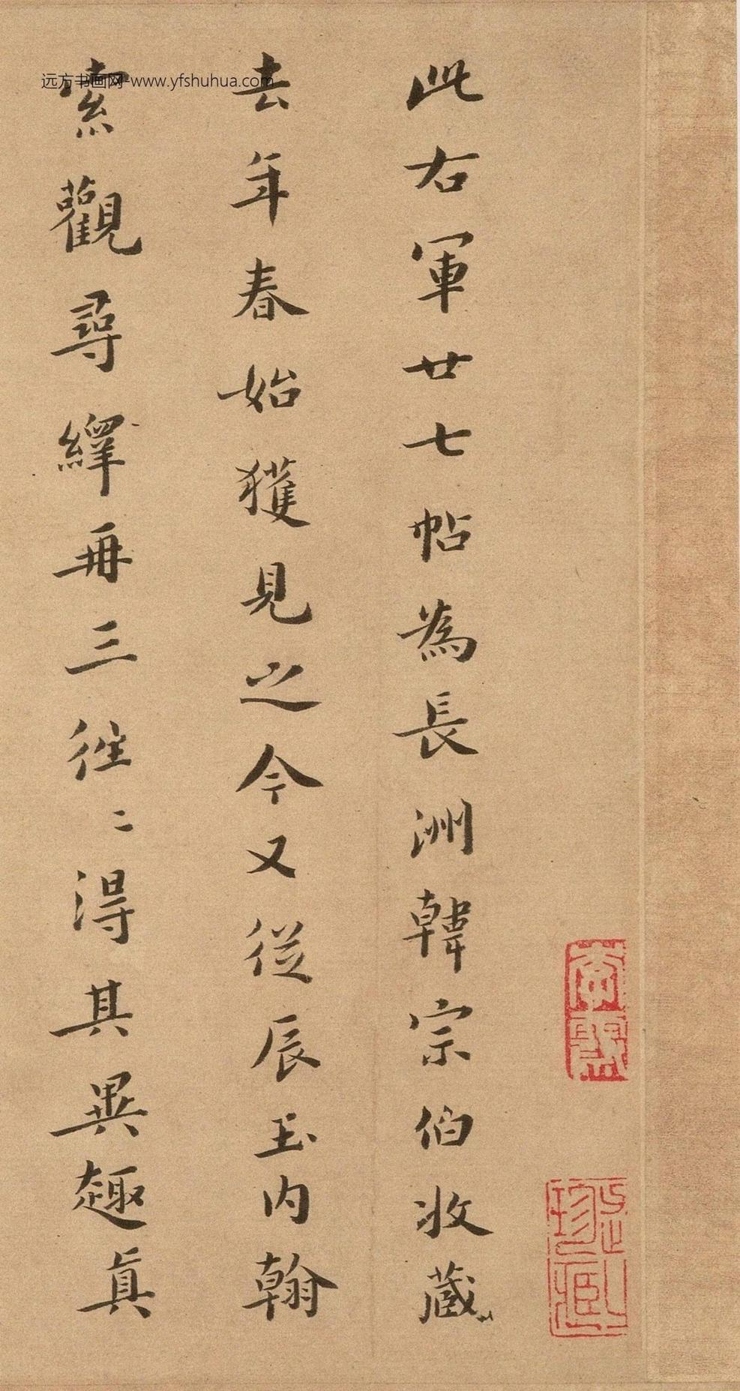 此右軍廿七帖為長洲韓宗伯收藏
去年春始獲見之今又從辰玉內翰
索觀尋繹再三往〻得其異趣真
远方书画网-www.yfshuhua.com